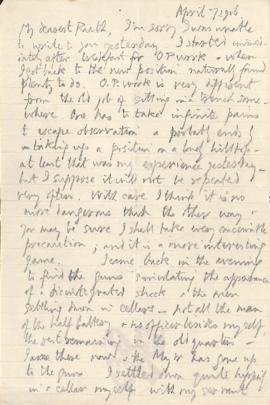 April 7/1916
My dearest Ruth, I'm sorry I was unable
to write to you yesterday. I started immedi-
ately after breakfast for O.P. work - when
I got back to the new position naturally found
plenty to do. O.P. work is very different
from the old job of sitting in a trench some-
where. One has to take infinite pains
to escape observation
taking up a position on a hilltop -
at least that was my experience yesterday -
but I suppose it will not be repeated
very often. With care I think it is no
more dangerous than the other way -
you may be sure I shall take every conceivable
precaution; and it is a more interesting
game. I came back in the evening
to find the guns simulating the appearance
of a disintegrated shack & the men
settling down in cellars - not all the men
of the half battery - no officer besides myself,
the rest remaining in the old quarters -
I was there now the Major has gone up
to the guns I settled down quite happily
in a cellar myself with my servant